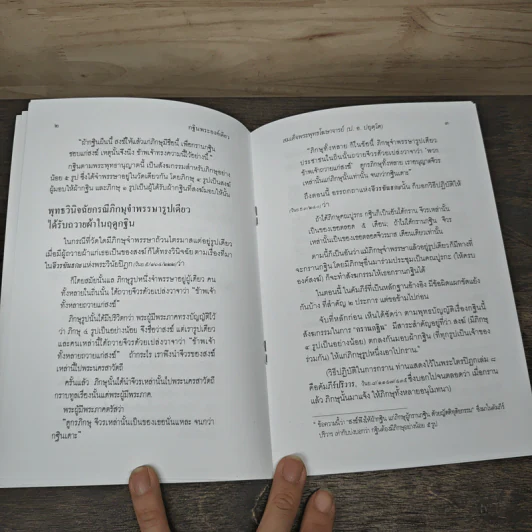 ๒ กฐินพระองค์เดียว
"ผ้ากฐินผืนนี้ สงฆ์ให้แล้วแก่ภิกษุมีชื่อนี้ เพื่อกรานกฐิน
ชอบแก่สงฆ์ เหตุนั้นจึงนิ่ง ข้าพเจ้าทรงความนี้ไว้อย่างนี้"
กฐินตามพระพุทธานุญาตนี้ เป็นสังฆกรรมสำหรับภิกษุอย่าง
น้อย ๕ รูป ซึ่งได้จำพรรษาอยู่ในวัดเดียวกัน โดยภิกษุ ๔ รูปเป็นสงฆ์
ผู้มอบให้ผ้ากฐิน และภิกษุ ๑ รูปเป็นผู้ได้รับผ้ากฐินที่สงฆ์มอบให้นั้น
พุทธวินิจฉัยกรณีภิกษุจำพรรษารูปเดียว
ได้รับถวายผ้าในฤดูกฐิน
ในกรณีที่วัดใดมีภิกษุจำพรรษาถ้วนไตรมาสแต่อยู่รูปเดียว
เมื่อมีผู้ถวายผ้าแก่เธอเป็นของสงฆ์ ก็ได้ทรงวินิจฉัย ตามที่มีมา
ใน จีวรขันธกะ แห่งพระวินัยปิฎก ว่า
ก็โดยสมัยนั้นแล ภิกษุรูปหนึ่งจำพรรษาอยู่ผู้เดียว คน
ทั้งหลายในถิ่นนั้น ได้ถวายจีวรด้วยเปล่งวาจาว่า "ข้าพเจ้า
ทั้งหลายถวายแก่สงฆ์"
ภิกษุรูปนั้นได้มีปริวิตกว่า พระผู้มีพระภาคทรงบัญญัติไว้
ว่า ภิกษุ ๔ รูปเป็นอย่างน้อย จึงชื่อว่าสงฆ์ แต่เรารูปเดียว
และคนเหล่านี้ได้ถวายจีวรด้วยเปล่งวาจาว่า "ข้าพเจ้า
ทั้งหลายถวายแก่สงฆ์" ถ้ากระไร เราพึงนำจีวรของสงฆ์
เหล่านี้ไปพระนครสาวัตถี
ครั้นแล้ว ภิกษุนั้นได้นำจีวรเหล่านั้นไปพระนครสาวัตถี
กราบทูลเรื่องนั้นแด่พระผู้มีพระภาค
พระผู้มีพระภาคตรัสว่า
"ดูกรภิกษุ จีวรเหล่านั้นเป็นของเธอนั่นแหละ จนกว่า
กฐินเดาะ"
สมเด็จพระพุทธโฆษาจารย์ (ป. อ. ปยุตฺโต) ๓
"ภิกษุทั้งหลาย ก็ในข้อนี้ ภิกษุจำพรรษารูปเดียว
ประชาชนในถิ่นนั้นถวายจีวรด้วยเปล่งวาจาว่า 'พวก
ข้าพเจ้าถวายแก่สงฆ์' ดูกรภิกษุทั้งหลาย เราอนุญาตจีวร
เหล่านั้นแก่ภิกษุนั้นเท่านั้น จนกว่ากฐินเดาะ"
ถึงตอนนี้ อรรถกถาแห่งจีวรขันธกะนั้น ก็บอกวิธีปฏิบัติให้
ว่า
ถ้าได้ภิกษุคณปูรกะ กฐินก็เป็นอันได้กราน จีวรเหล่านั้น
เป็นของเธอตลอด ๕ เดือน; ถ้าไม่ได้กรานกฐิน จีวร
เหล่านั้นเป็นของเธอตลอดจีวรมาส เดือนเดียวเท่านั้น
ตามนี้ก็เป็นอันว่า แม้ภิกษุจำพรรษาแล้วอยู่รูปเดียว ก็มีทางที่
จะกรานกฐิน โดยมีภิกษุอื่นมาร่วมประชุมเป็นคณปูรกะ (ให้ครบ
องค์สงฆ์) ก็จะทำสังฆกรรมให้เธอกรานกฐินได้
ในตอนนี้ ในคัมภีร์ที่เป็นหลักฐานอ้างอิง มีข้อผิดแผกขัดแย้ง
กันบ้าง ที่สำคัญ ๒ ประการ แต่ขอข้ามไปก่อน
จับที่หลักก่อน เห็นได้ชัดว่า ตามพุทธบัญญัติเรื่องกฐินนี้
สังฆกรรมในการ "กรานกฐิน" มีสาระสำคัญอยู่ที่ว่า สงฆ์ (มีภิกษุ
๔ รูปเป็นอย่างน้อย) ตกลงกันมอบผ้ากฐิน (ที่ทุกรูปเป็นเจ้าของ
ร่วมกัน) ให้แก่ภิกษุรูปหนึ่งเอาไปกราน
(วิธีปฏิบัติในการกราน ท่านแสดงไว้ในพระไตรปิฎกเล่ม ๘
คือคัมภีร์ปริวาร, ซึ่งบอกไปจนตลอดว่า เมื่อกราน
แล้ว ภิกษุนั้นมาแจ้ง ให้ภิกษุทั้งหลายอนุโมทนา)